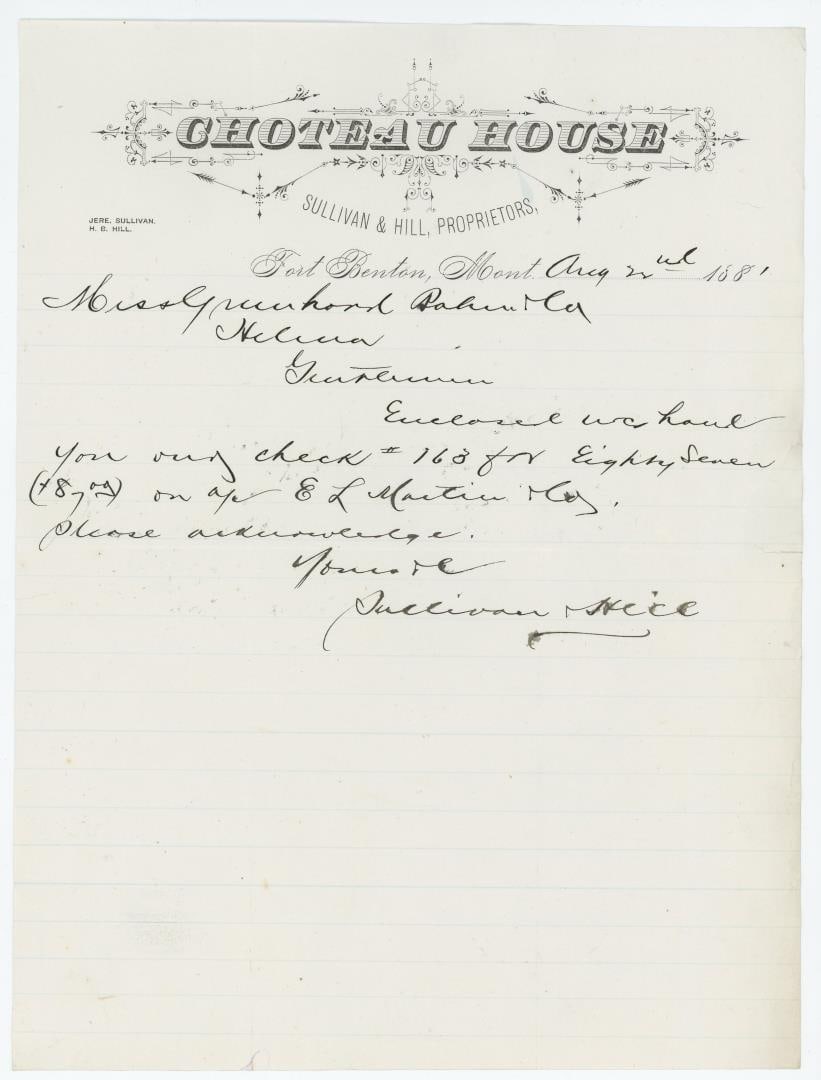 CHOTEAU HOUSE
SULLIVAN & HILL, PROPRIETORS,
JERE. SULLIVAN.
H. B. HILL.
Fort Benton, Mont. Aug 22nd 1881
Mess Greenhood Bohm & Co
Helena
Gentlemen
Enclosed we hand
you our check # 163 for Eighty Seven
($87 00) on a/c E L Martin & Co,
please acknowledge.
Yours &c
Sullivan & Hill